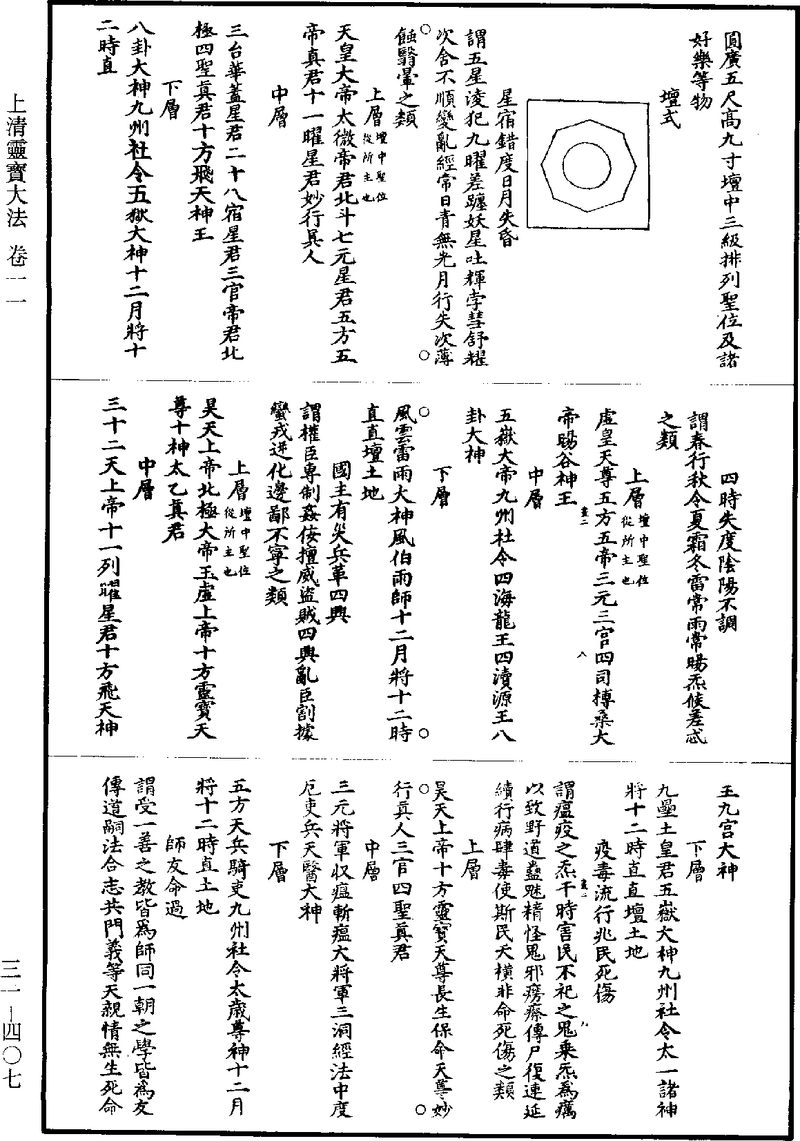 上清靈寶大法 卷一一
三一－四〇七
圓廣五尺高九寸壇中三級排列聖位及諸
好樂等物
壇式
星宿錯度日月失昏
謂五星淩犯九曜差躔妖星吐輝孛彗舒耀
次舍不順變亂經常日青無光月行失次薄
蝕翳暈之類
上層壇中聖位從所主也
天皇大帝太微帝君北斗七元星君五方五
帝真君十一曜星君妙行真人
中層
三台華蓋星君二十八宿星君三官帝君北
極四聖真君十方飛天神王
下層
八卦大神九州社令五嶽大神十二月將十
二時直
四時失度陰陽不調
謂春行秋令夏霜冬雷常雨常暘炁候差忒
之類
上層壇中聖位從所主也
虛皇天尊五方五帝三元三宫四司榑桑大
帝暘谷神王
中層
五嶽大帝九州社令四海龍王四瀆源王八
卦大神
下層
風雲雷雨大神風伯雨師十二月將十二時
直直壇土地
國主有災兵革四興
謂權臣專制姦佞擅威盜賊四興亂臣割據
蠻戎逆化邊鄙不寧之類
上層壇中聖位從所主也
昊天上帝北極大帝玉虛上帝十方靈寶天
尊十神太乙真君
中層
三十二天上帝十一列曜星君十方飛天神
王九宫大神
下層
九壘土皇君五嶽大神九州社令太一諸神
將十二時直直壇土地
疫毒流行兆民死傷
謂瘟疫之炁干時害民不祀之鬼乘炁為癘
以致野道蠱魅精怪鬼邪癆瘵傳尸復連延
續行病肆毒使斯民夭橫非命死傷之類
上層
昊天上帝十方靈寶天尊長生保命天尊妙
行真人三官四聖真君
中層
三元將軍収瘟斬瘟大將軍三洞經法中度
厄吏兵天醫大神
下層
五方天兵騎吏九州社令太歲尊神十二月
將十二時直土地
師友命過
謂受一善之教皆為師同一朝之學皆為友
傳道嗣法合志共門義等天親情無生死命